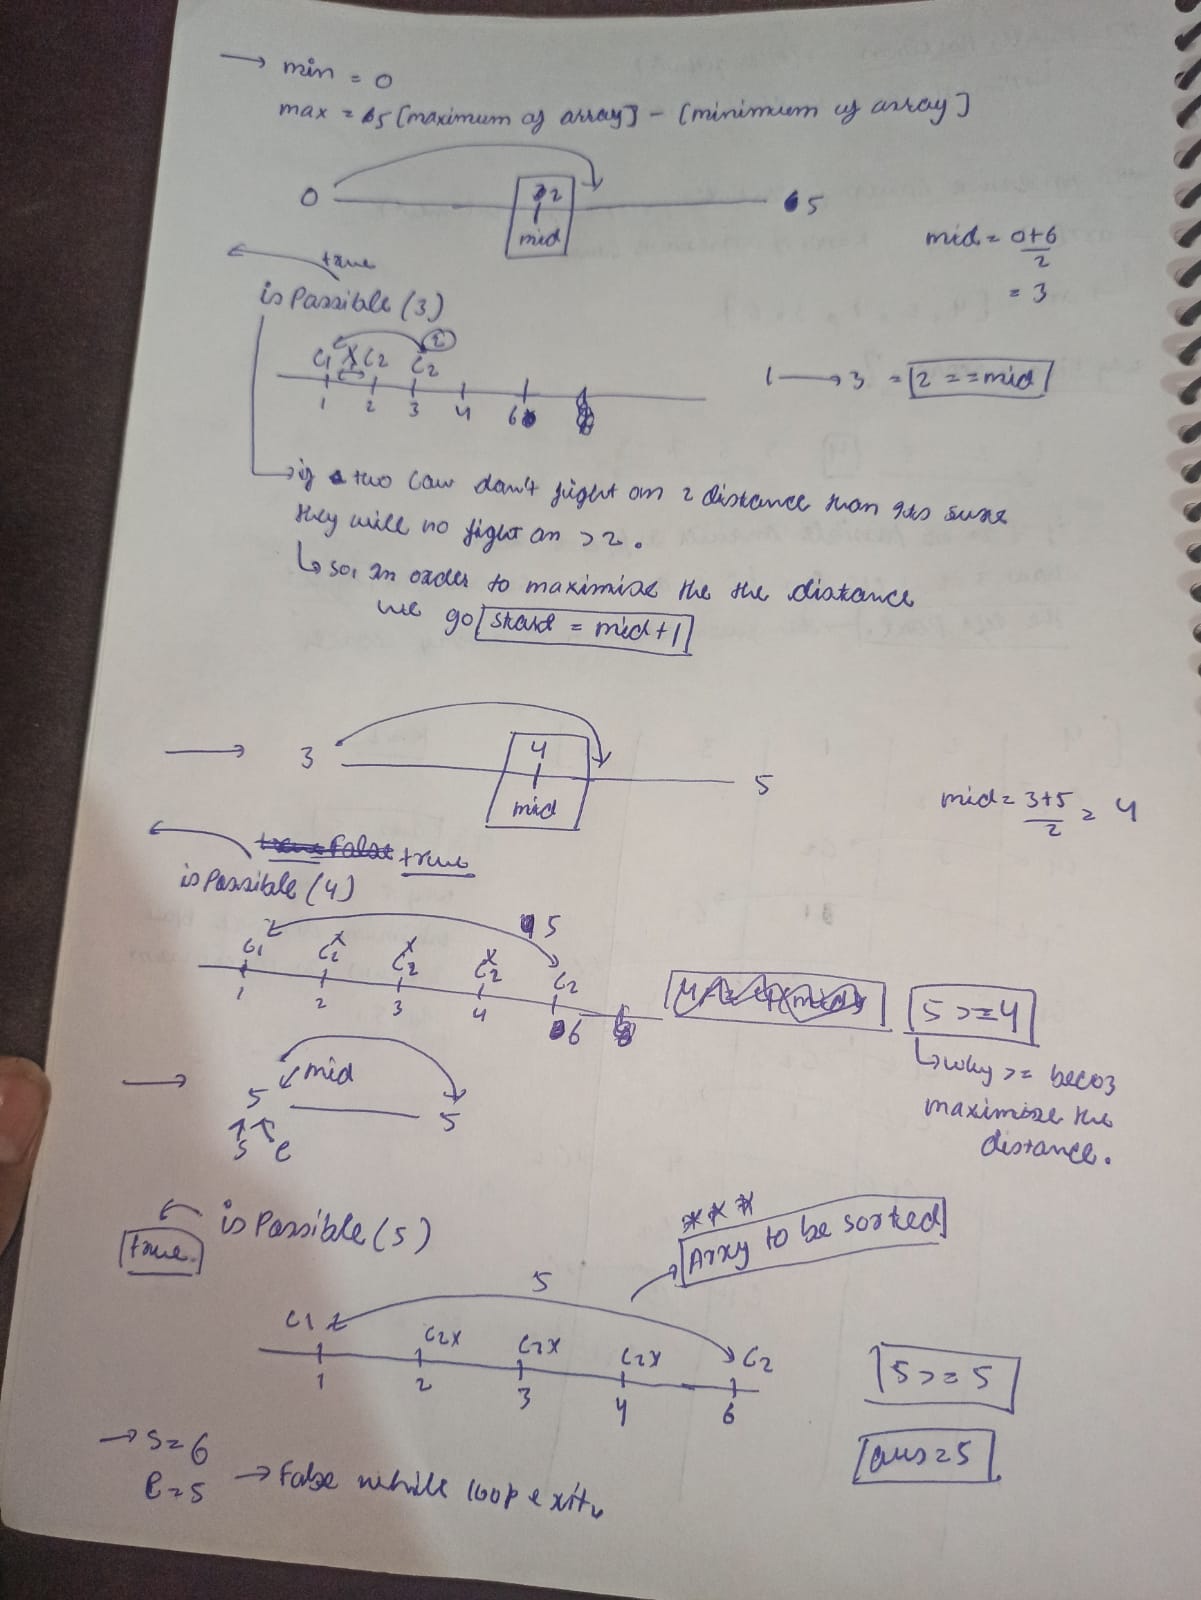 → min = 0
max = 5 [maximum of array] - [minimum of array]
0 2 5
mid
mid = 0+6
2
= 3
true
is Possible (3)
C1 X C2 C2 2
1 2 3 4 6
1 → 3 = 2 == mid
→ if two cow don't fight on 2 distance than its sure
they will no fight on >2.
↳ so, in order to maximize the the distance
we go start = mid+1
→ 3 4 5
mid
mid = 3+5 = 4
2
true False true
is Possible (4)
5
C1 C2 x C2 x C2 x C2
1 2 3 4 6
5 >= 4
↳ why >= becoz
maximize the
distance.
→ mid
5 5
s e
is Possible (5)
true
***
Arry to be sorted
5
C1 C2x C2x C2x C2
1 2 3 4 6
5 >= 5
ans = 5
→ s = 6
e = 5 → False while loop exit